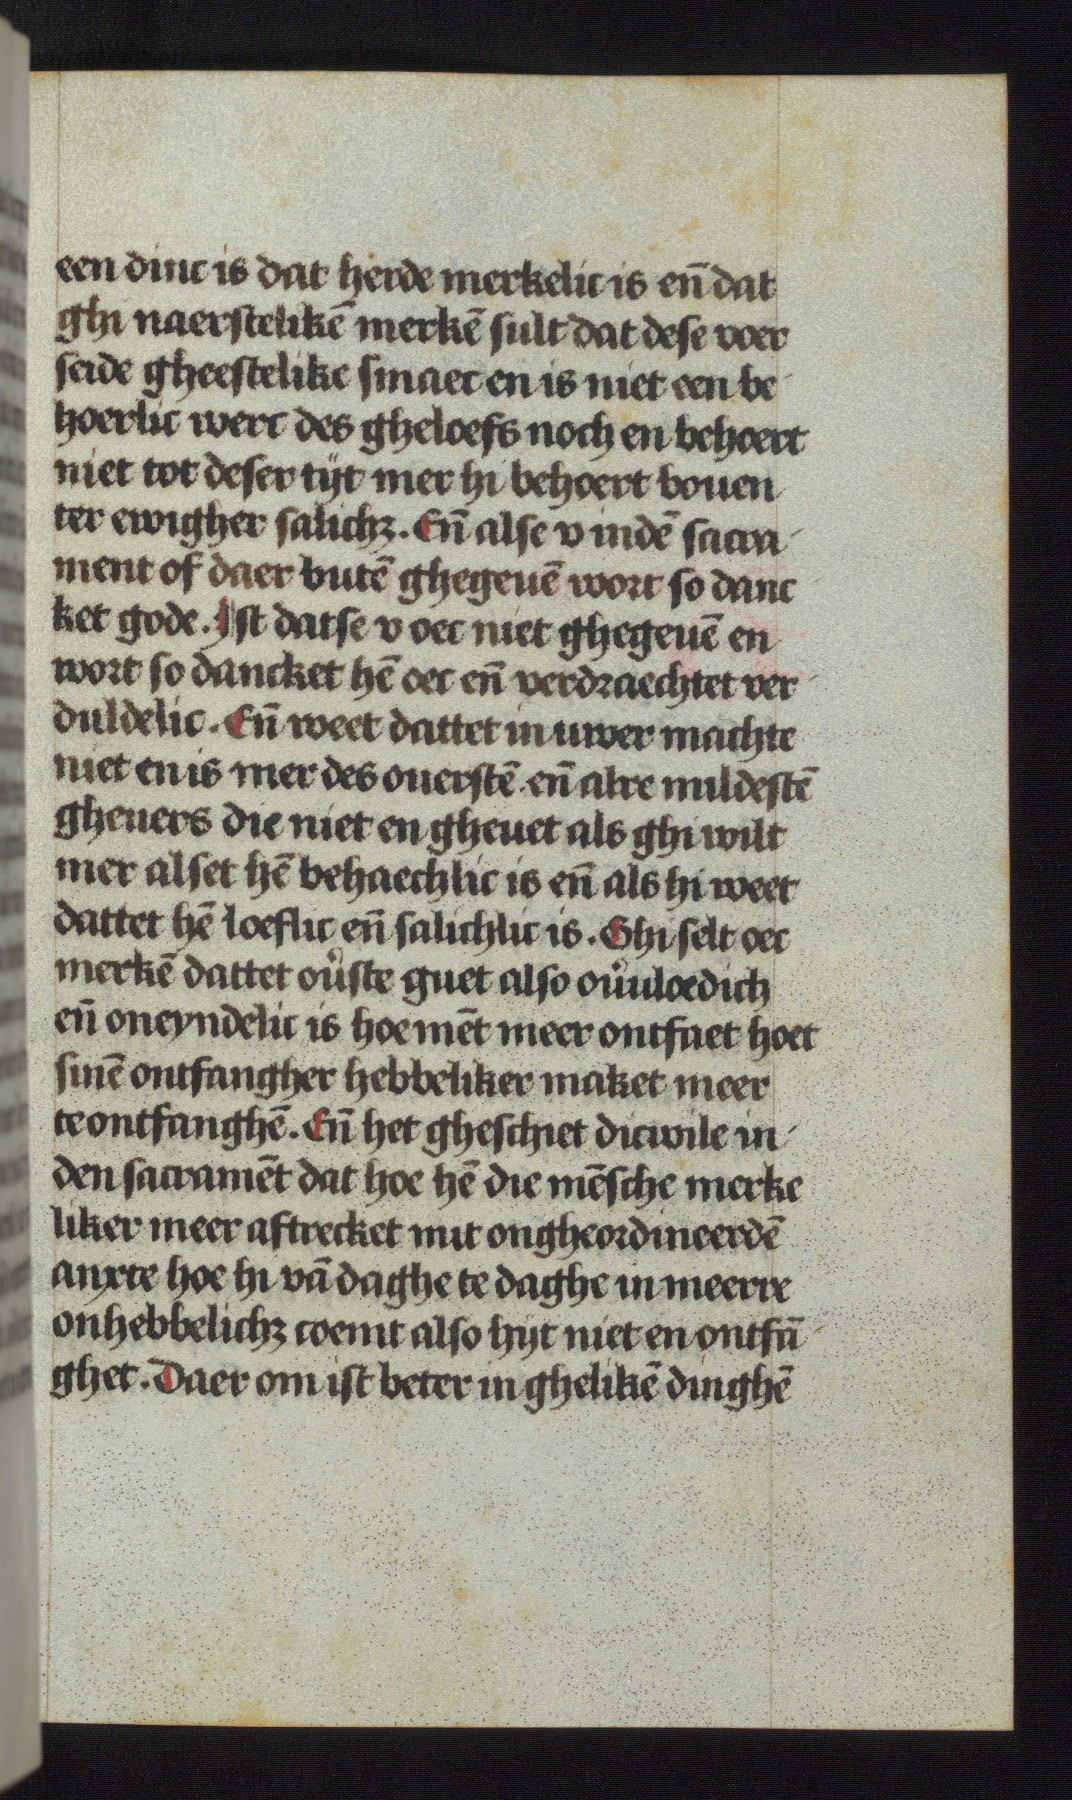 een dinc is dat herde merkelic is en̄ dat
ghi naerstelikē merkē sult dat dese voer
seide gheestelike smaec en is niet een be
hoerlic werc des gheloefs noch en behoert
niet tot deser tijt mer hi behoert bouen
ter ewigher salichꝫ. En̄ alse v indē sacra
ment of daer butē ghegeuē wort so danc
ket gode. Ist datse v oec niet ghegeuē en
wort so dancket hē oec en̄ verdraechtet ver
duldelic. En̄ weet dattet in uwer machte
niet en is mer des ouerstē en̄ alre mildestē
gheuers die niet en gheuet als ghi wilt
mer alset hē behaechlic is en̄ als hi weet
dattet hē loeflic en̄ salichlic is. Ghi selt oec
merkē dattet ou̕ste guet also ou̕uloedich
en̄ oneyndelic is hoemēt meer ontfaet hoet
sinē ontfangher hebbeliker maket meer
te ontfanghē. En̄ het ghesciet dicwile in
den sacramēt dat hoe hē die mēsche merke
liker meer aftrecket mit ongheordineerdē
anxte hoe hi vā daghe te daghe in meerre
onhebbelichꝫ coemt also hijt niet en ontfā
ghet. Daer om ist beter in ghelikē dinghē